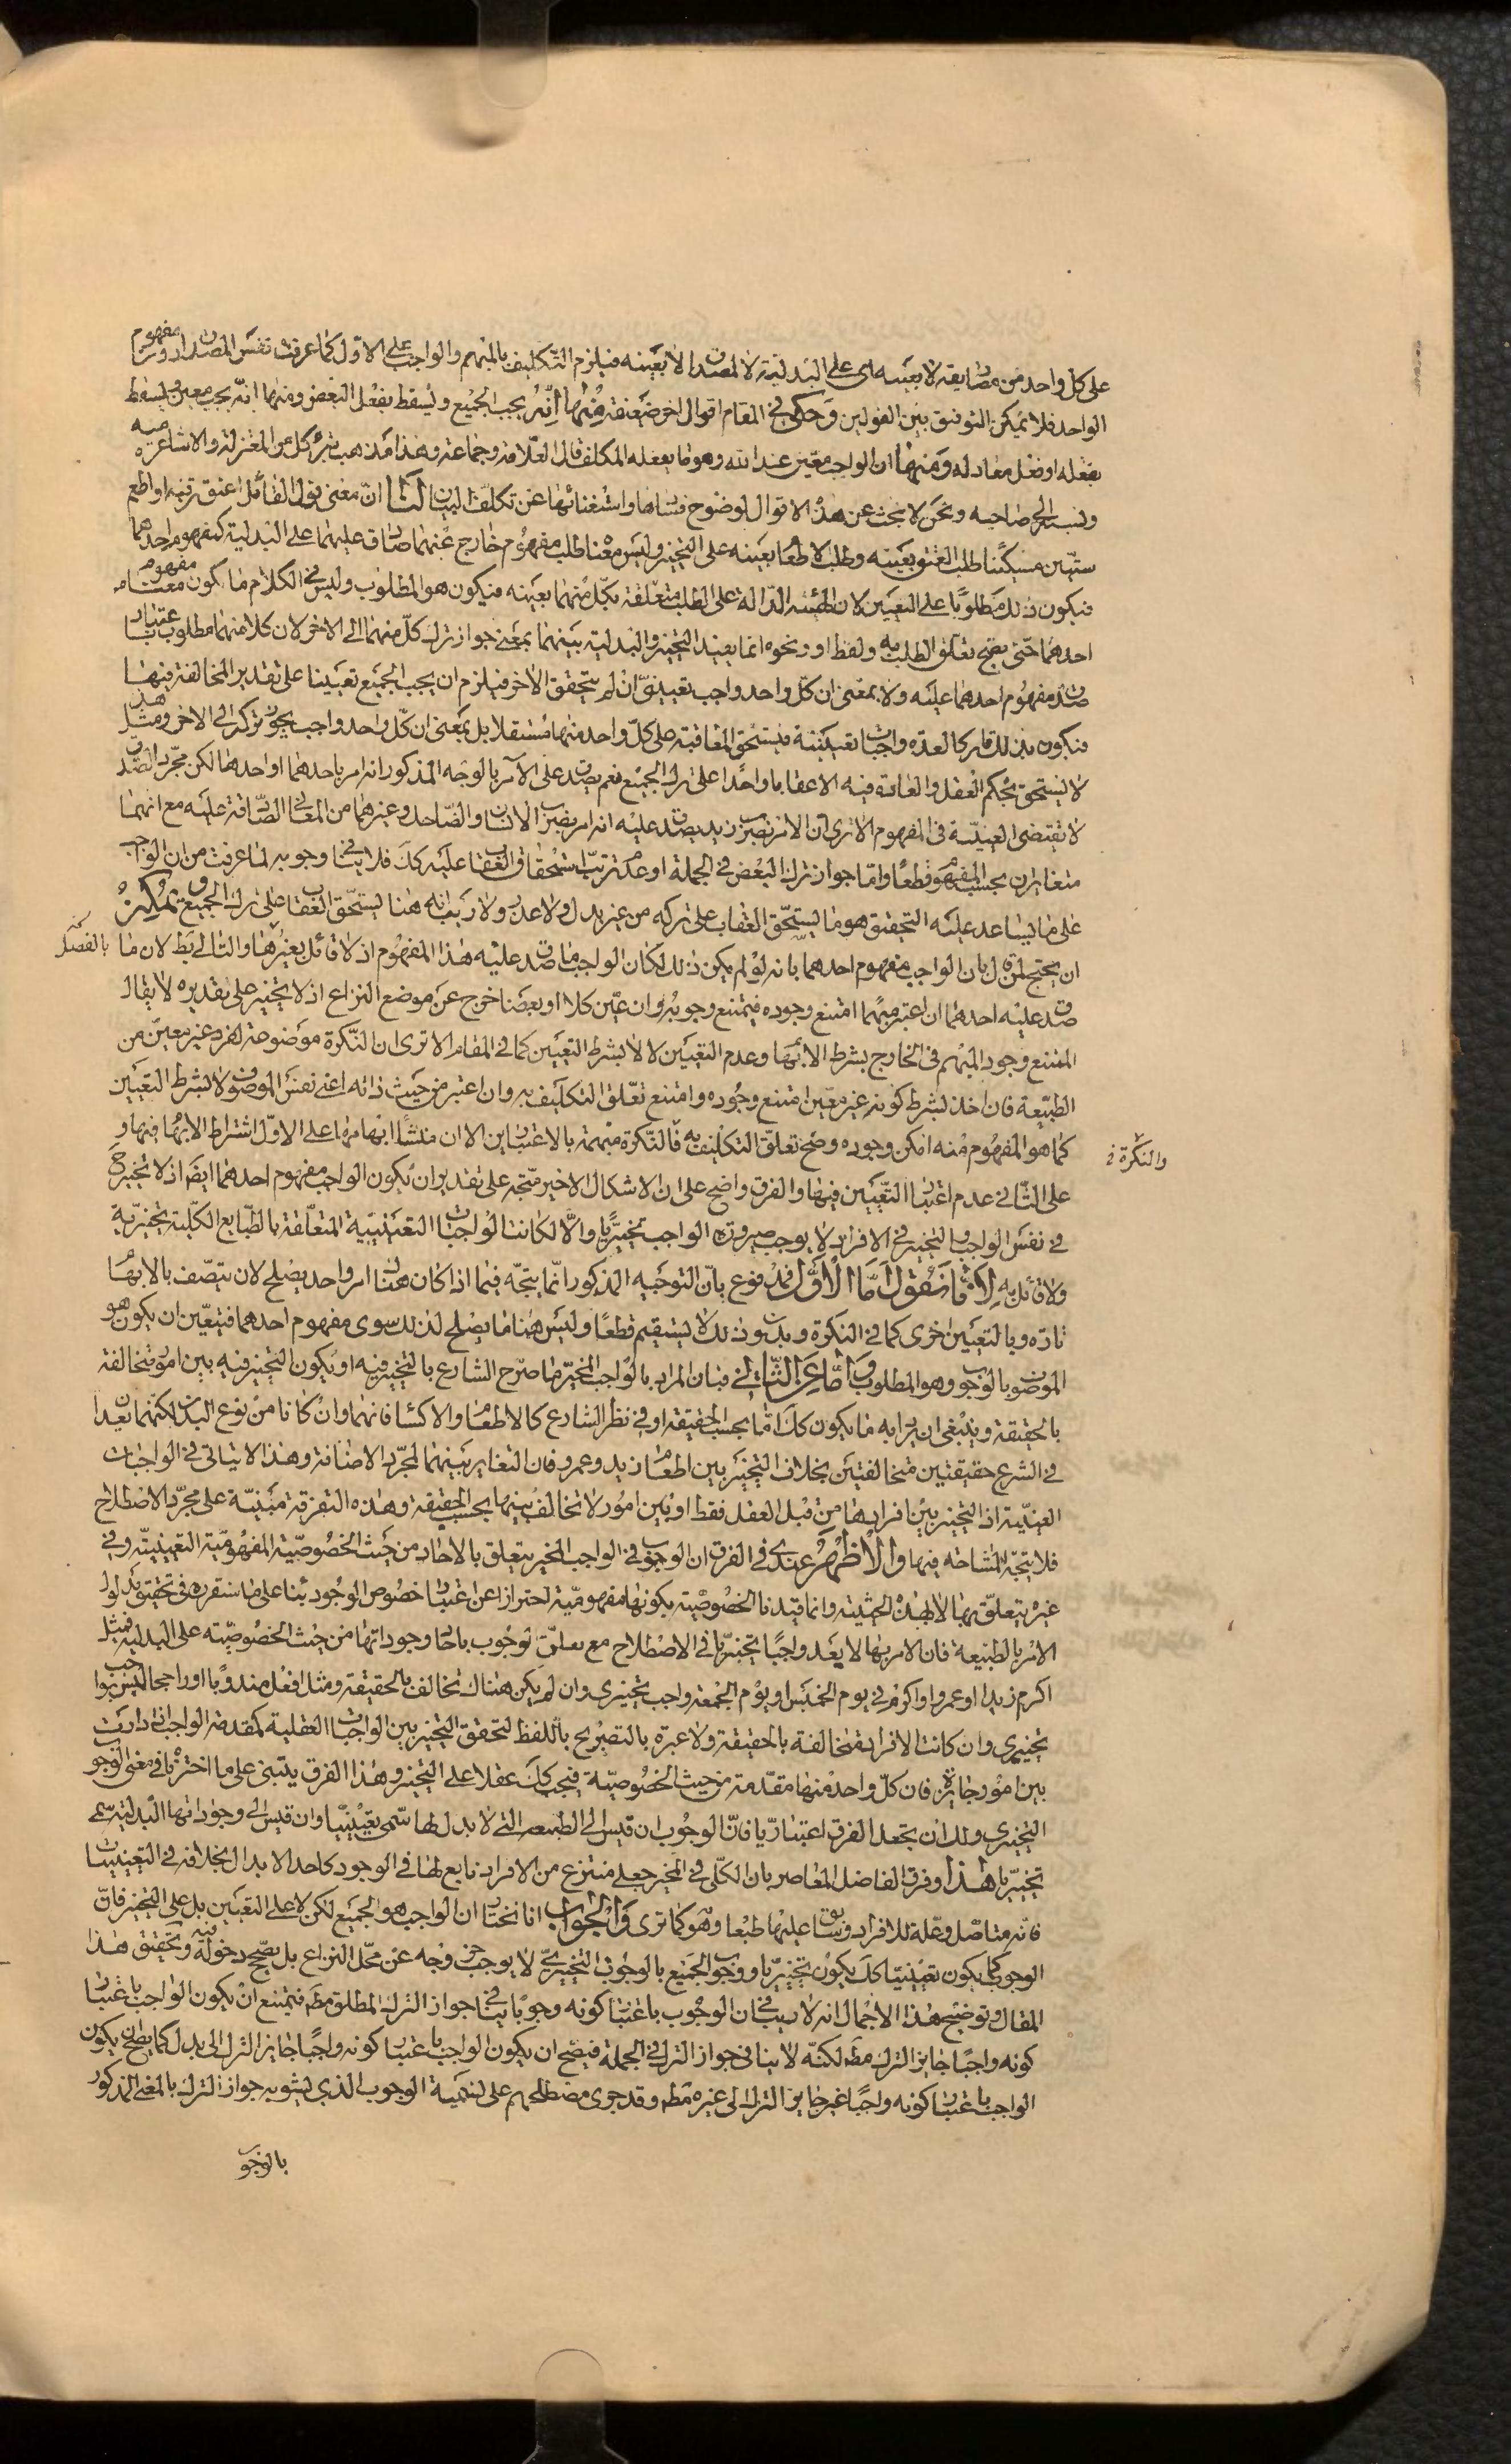 على كل واحد من مصاديقه لا بعينه اى على البدلية لا المصداق لا بعينه فيلزم التكليف بالمبهم والواجب على الاول كما عرفت نفس المصداق دون مفهوم
الواحد فلا يمكن التوفيق بين القولين وحكى فى المقام اقوال اخر ضعيفة منها انه يجب الجميع ويسقط بفعل البعض ومنها انه يجب معين ويسقط
بفعله او فعل معادله ومنها ان الواجب معين عند الله وهو ما يفعله المكلف قال العلامة وجماعة وهذا مذهب تبرء كل من المعتزلة والاشاعرة منه
ونسبه الى صاحبه ونحن لا نبحث عن هذه الاقوال لوضوح فسادها واستغنائها عن تكلف البيان لنا ان معنى قول القائل اعتق رقبة او اطعم
ستين مسكينا طلب العتق بعينه وطلب الاطعام بعينه على التخيير وليس معنا طلب مفهوم خارج عنهما صادق عليهما على البدلية كمفهوم احدهما
فيكون ذلك مطلوبا على التعيين لان الهيئة الدالة على الطلب متعلقة بكل منهما بعينه فيكون هو المطلوب وليس فى الكلام ما يكون معناه مفهوم
احدهما حتى يصح تعلق الطلب به ولفظ او ونحوه انما يفيد التخيير والبدلية بينهما بمعنى جواز ترك كل منهما الى الاخر لان كلا منهما مطلوب باعتبار
صدق مفهوم احدهما عليه ولا بمعنى ان كل واحد واجب تعيينى ان لم يتحقق الاخر فيلزم ان يجب الجميع تعيينا على تقدير المخالفة فيها
فيكون بذلك تارك العدة واجبات تعيينية فيستحق المعاقبة على كل واحد منها مستقلا بل بمعنى ان كل واحد واجب يجوز تركه الى الاخر ومثل هذا
لا يستحق بحكم العقل والعادة فيه الا عقابا واحدا على ترك الجميع نعم يصدق على الآمر بالوجه المذكور انه امر باحدهما او احدها لكن مجرد الصدق
لا تقتضى العينية فى المفهوم الا ترى ان الامر بضرب زيد يصدق عليه انه امر بضرب الانسان والضاحك وغيرهما من المعانى الصادقة عليه مع انهما
متغايران بحسب المفهوم قطعا واما جواز ترك البعض فى الجملة او عدم ترتب استحقاق العقاب عليه كك فلا ينافى وجوبه لما عرفت من ان الواجب
على ما يساعد عليه التحقيق هو ما يستحق العقاب على تركه من غير بدل ولا عذر ولا ريب انه هنا يستحق العقاب على ترك الجميع ويمكن
ان يحتج لمن قال بان الواجب مفهوم احدهما بانه لو لم يكن ذلك لكان الواجب ما صدق عليه هذا المفهوم اذ لا قائل بغيرها والتالى بط لان ما بالفصل
صدق عليه احدهما ان اعتبر مبهما امتنع وجوده فيمتنع وجوبه وان عين كلا او بعضا خرج عن موضع النزاع اذ لا تخيير على تقديره لا يقال
الممتنع وجود المبهم فى الخارج بشرط الابهام وعدم التعيين لا لا بشرط التعيين كما فى المقام الا ترى ان النكرة موضوعة لفرد غير معين من
الطبيعة فان اخذ بشرط كونه غير معين امتنع وجوده وامتنع تعلق التكليف به وان اعتبر من حيث ذاته اعنى نفس الموصوف لا بشرط التعيين
كما هو المفهوم منه امكن وجوده وصح تعلق التكليف به فالنكرة مبهمة بالاعتبارين الا ان منشأ ابهامها على الاول اشتراط الابهام فيها و
والنكرة
على الثانى عدم اعتبار التعيين فيها والفرق واضح على ان الاشكال الاخير متجه على تقدير ان يكون الواجب مفهوم احدهما ايضا اذ لا تخيير ح
فى نفس الواجب والتخيير فى الافراد لا يوجب صيرورة الواجب تخييريا والا لكانت الواجبات التعيينية المتعلقة بالطبايع الكلية تخييرية
ولا قائل به لانا نقول اما الاول فمدفوع بان التوجيه المذكور انما يتجه فيما اذا كان هناك امر واحد يصلح لان يتصف بالابهام
تارة وبالتعيين اخرى كما فى النكرة وبدون ذلك لا يستقيم قطعا وليس هنا ما يصلح لذلك سوى مفهوم احدهما فتعين ان يكون هو
الموصوف بالوجوب وهو المطلوب واما عن الثانى فبان المراد بالواجب المخير ما صرح الشارع بالتخيير فيه او يكون التخيير فيه بين امور متخالفة
بالحقيقة وينبغى ان يراد به ما يكون كك اما بحسب الحقيقة او فى نظر الشارع كالاطعام والاكساء فانهما وان كانا من نوع البدن لكنهما يعدان
فى الشرع حقيقتين متخالفتين بخلاف التخيير بين اطعام زيد وعمرو فان التغاير بينهما لمجرد الاضافة وهذا لا يتاتى فى الواجبات
العينية اذ التخيير بين افرادها من قبل العقل فقط او بين امور لا تخالف بينها بحسب الحقيقة وهذه التفرقة مبنية على مجرد الاصطلاح
فلا يتجه المشاحة فيها والاظهر عندى فى الفرق ان الوجوب فى الواجب المخير يتعلق بالآحاد من حيث الخصوصية المفهومية التعيينية وفى
غيره يتعلق بها لا بهذه الحيثية وانما قيدنا الخصوصية بكونها مفهومية احترازا عن اعتبار خصوص الوجود بناء على ما سنقرره فى تحقيق مدلول
الامر بالطبيعة فان الامر بها لا يعد واجبا تخييريا فى الاصطلاح مع تعلق الوجوب بآحاد وجوداتها من حيث الخصوصية على البدلية فمثل
اكرم زيدا او عمروا او اكرم فى يوم الخميس او يوم الجمعة واجب تخييرى وان لم يكن هناك تخالف بالحقيقة ومثل افعل مندوبا او راجحا ليس بواجب
تخييرى وان كانت الافراد متخالفة بالحقيقة ولا عبرة بالتصريح باللفظ لتحقق التخيير بين الواجبات العقلية كمقدمة الواجب اذا دارت
بين امور جايزة فان كل واحد منها مقدمة من حيث الخصوصية فيجب كك عقلا على التخيير وهذا الفرق يبتنى على ما اخترناه فى معنى الوجوب
التخييرى ولك ان تجعل الفرق اعتباريا فان الوجوب ان قيس الى الطبيعة التى لا بدل لها سمى تعيينيا وان قيس الى وجوداتها البدلية سمى
تخييريا هذا وفرق الفاضل المعاصر بان الكلى فى المخير جعلى منتزع من الافراد تابع لها فى الوجود كاحد الابدال بخلافه فى التعيينيات
فانه متاصل وعلة للافراد وسابق عليها طبعا وهو كما ترى والجواب انا نختار ان الواجب هو الجميع لكن لا على التعيين بل على التخيير فان
الوجوب كما يكون تعيينيا كك يكون تخييريا ووجوب الجميع بالوجوب التخييرى لا يوجب خروجه عن محل النزاع بل يصحح دخوله فيه وتحقيق هذا
المقال وتوضيح هذا الاجمال انه لا ريب فى ان الوجوب باعتبار كونه وجوبا ينافى جواز الترك المطلق مطه فيمتنع ان يكون الواجب باعتبار
كونه واجبا جايز الترك مطه لكنه لا ينافى جواز الترك فى الجملة فيصح ان يكون الواجب باعتبار كونه واجبا جايز الترك الى بدل كما يصح ان يكون
الواجب باعتبار كونه واجبا غير جايز الترك الى غيره مطه وقد جرى مصطلحهم على تسمية الوجوب الذى يشوبه جواز الترك بالمعنى المذكور
بالوجوب